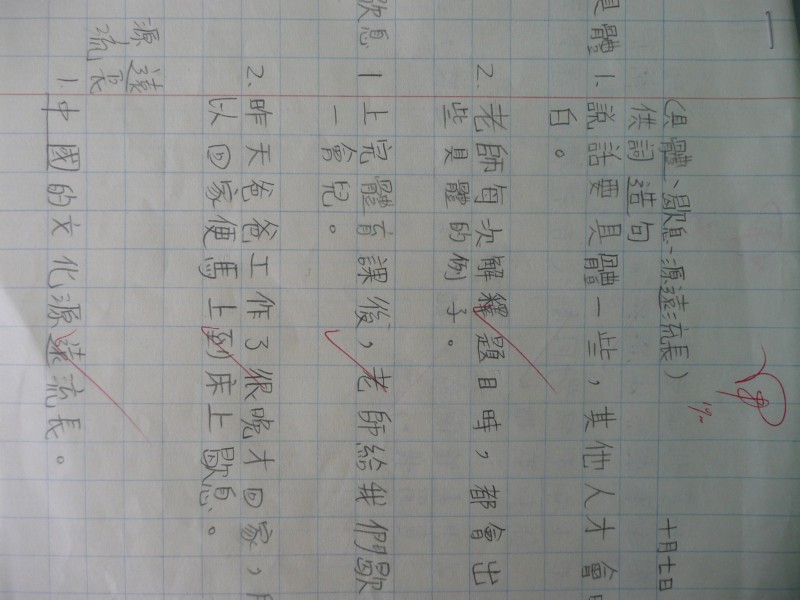 (具體、歇息、源遠流長)
十月七日
供詞造句
具體 1. 說話要具體一些,其他人才會
白。
2. 老師每次解釋題目時,都會出
些具體的例子。
歇息 1 上完體育課後,老師給我們歇
一會兒。
2. 昨天爸爸工作了很晚才回家,
以回家便馬上到床上歇息。
源遠流長
1. 中國的文化源遠流長。